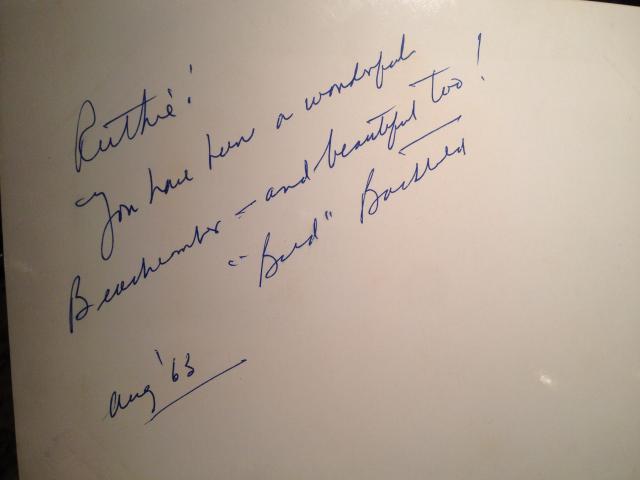 Ruthie!
You have been a wonderful
Beachcomber - and beautiful too!
"Bud"
Aug '63